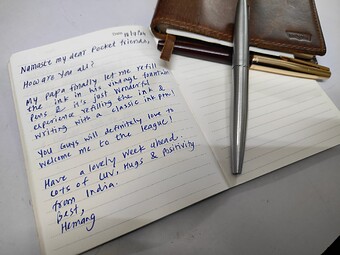 Namaste my dear Pocket friends,
How are you all?
My papa finally let me refill
the ink in his vintage fountain
pens & it's just wonderful
experience refilling the ink &
writing with a classic ink pen!
You guys will definitely love to
welcome me to the league!
Have a lovely week ahead.
Lots of luv, Hugs & Positivity
from India.
Best,
Hemang